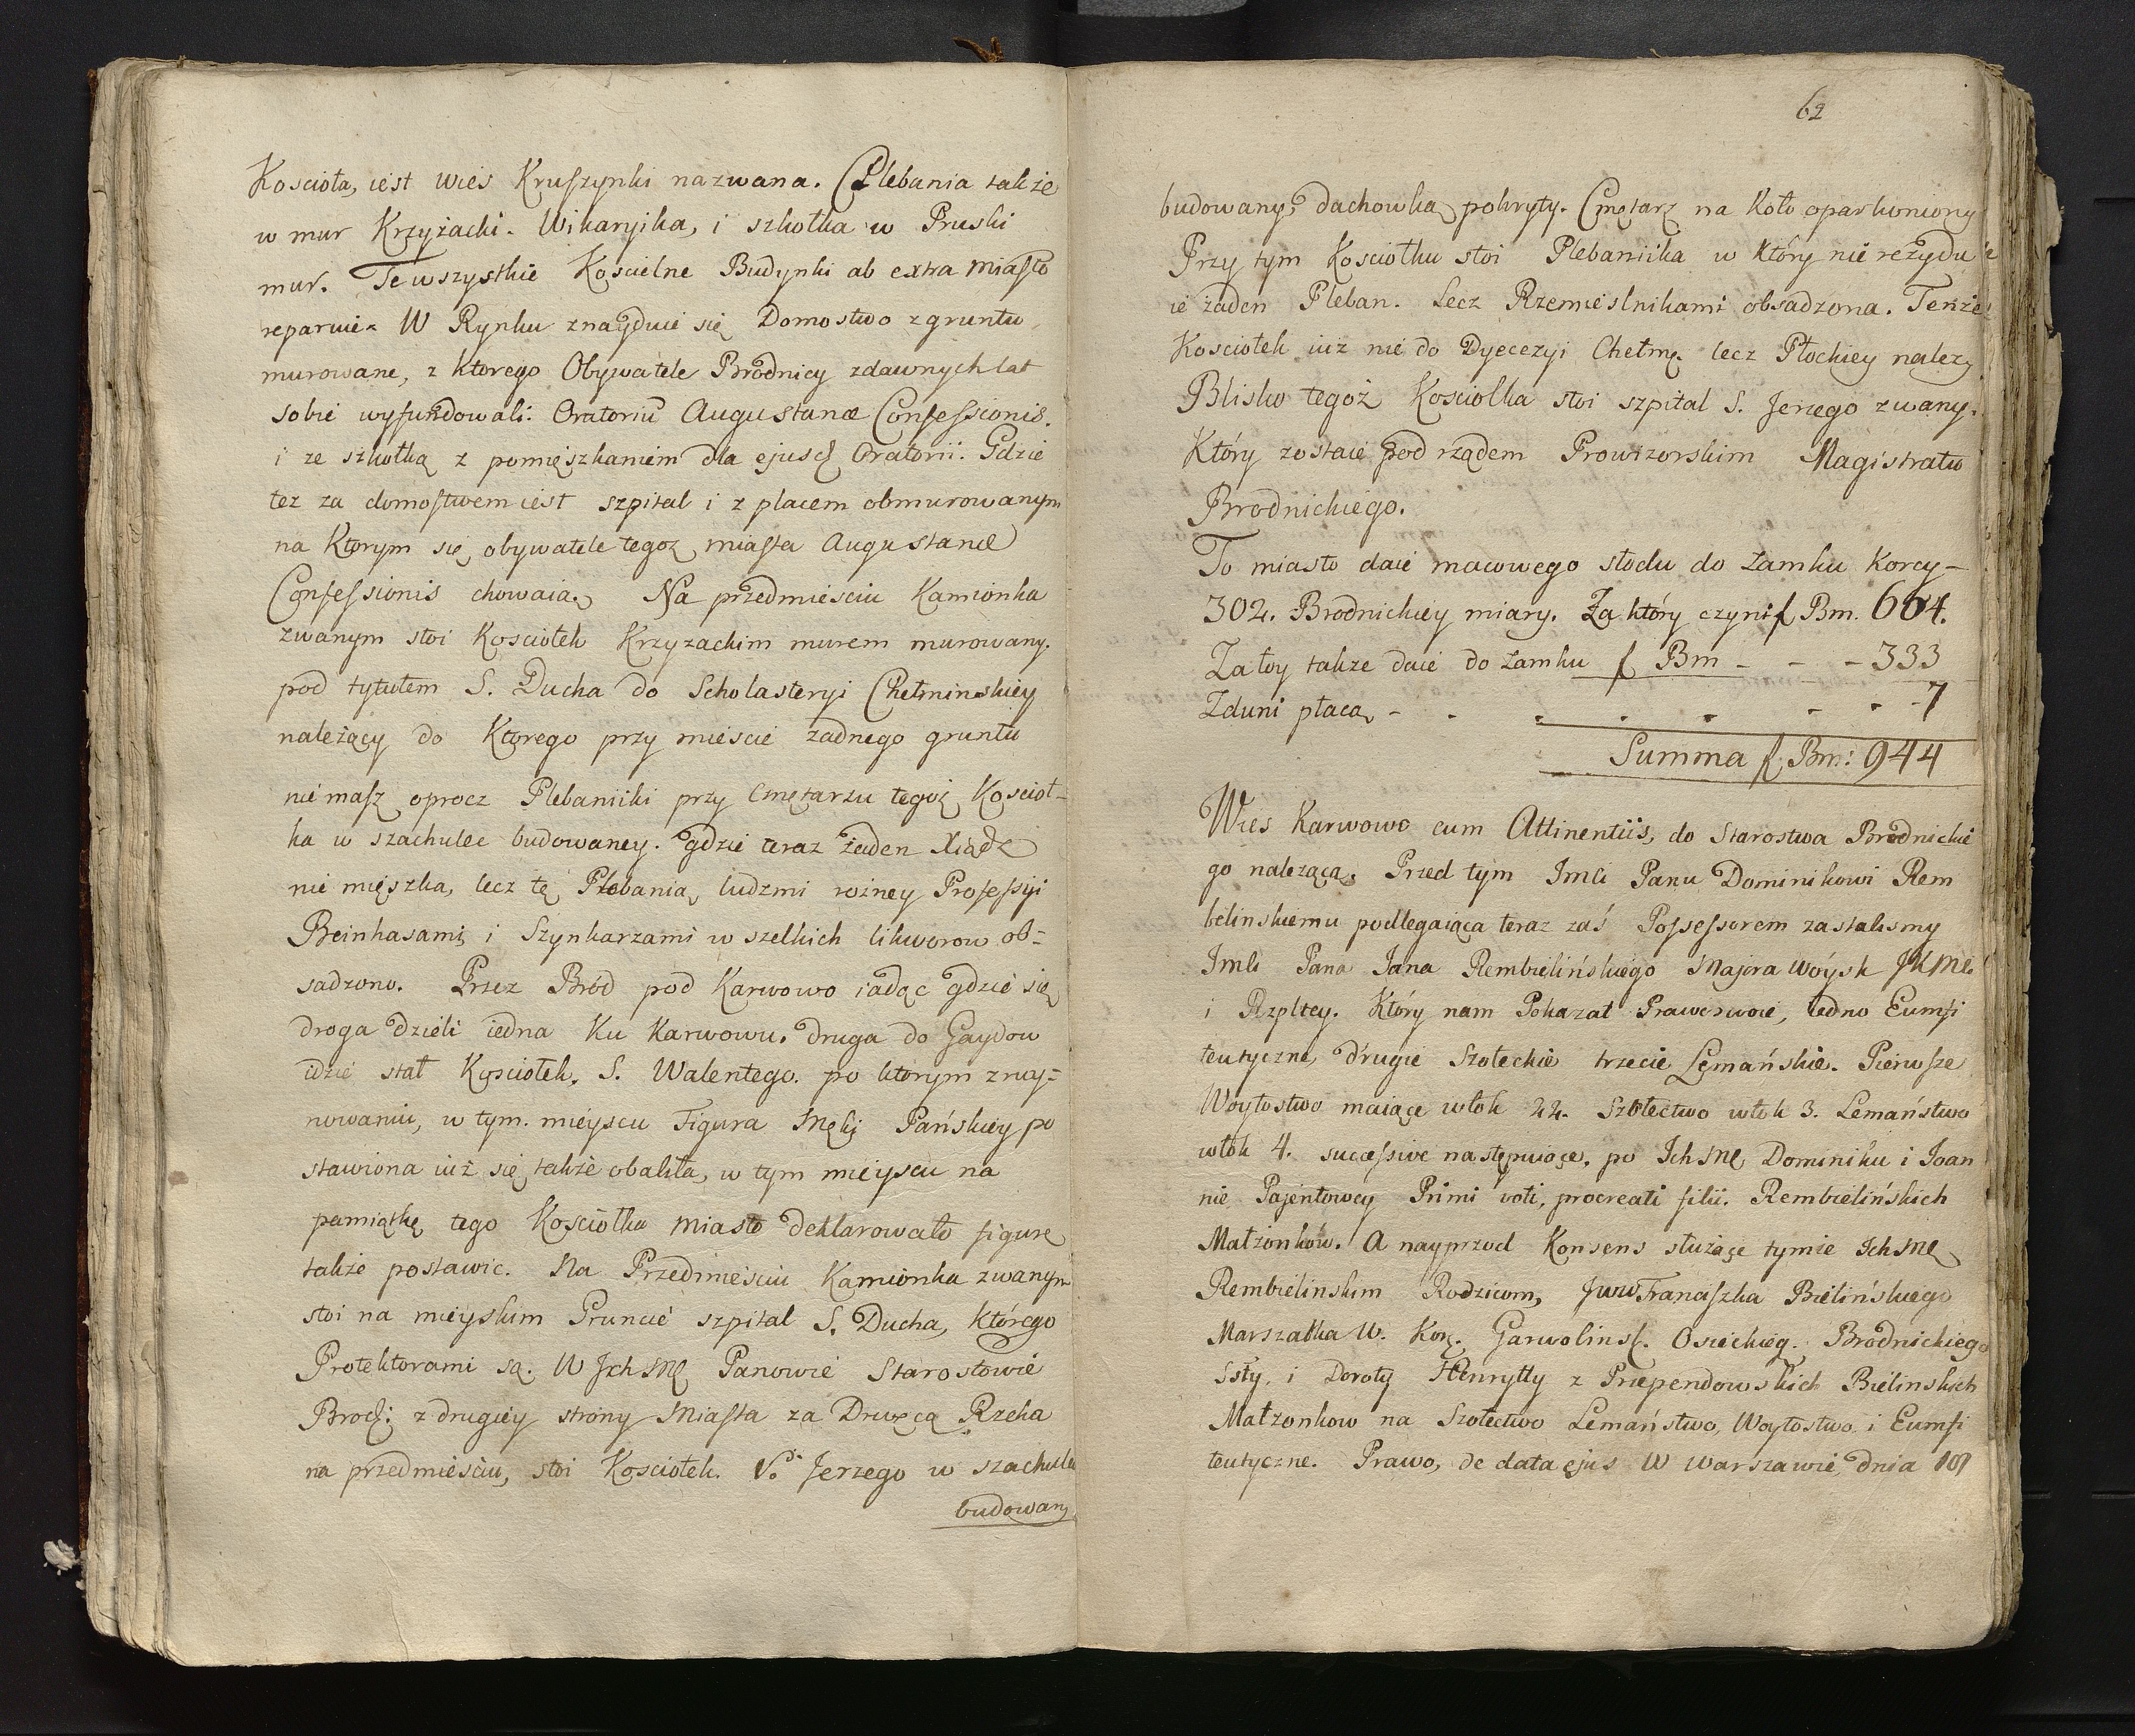 Koscioła, iest wies Kruszynki nazwana. Plebania także
w mur Krzyżacki. Wikaryika, i szkołka w Pruski
mur. Te wszystkie Koscielne Budynki ab extra miasto
reparuie. W Rynku znayduie się Domostwo z gruntu
murowane, z Ktorego Obywatele Brodnicy zdawnych lat
sobie wyfundowali. Oratoriū Augustanæ Confessionis.
i ze szkołką z pomięszkaniem dla ejusd Oratorii. Gdzie
tez za domostwem iest szpital i z placem obmurowanym
na Ktorym się obywatele tegoz miasta Augustanæ
Confessionis chowaią. Na przedmiesciu Kamionka
zwanym stoi Kosciołek Krzyzackim murem murowany.
pod tytułem S. Ducha do Scholasteryi Chełminskiey
należący do Ktorego przy miescie zadnego gruntu
nie masz oprocz Plebaniiki przy Cmętarzu tegoż Koscioł-
ka w szachulec budowaney. gdzie teraz żaden Xiądz
nie mięszka, lecz tę Plebanią ludzmi rożney Professyi
Beinhasami i Szynkarzami wszelkich likworow ob-
sadzono. Przez Bród pod Karwowo iadąc gdzie się
droga dzieli iedna Ku Karwowu. druga do Gaydow
idzie stał Kosciołek. S. Walentego. po ktorym zruy-
nowaniu, w tym. mieyscu Figura Męki Pańskiey po
stawiona iuż się także obaliła, w tym mieyscu na
pamiątkę tego Kosciołka miasto deklarowało figurę
także postawic. Na Przedmiesciu Kamionka zwanym
stoi na mieyskim Gruncie szpital S. Ducha, którego
Protektorami są. W Ich Mę Panowie Starostowie
Brod: z drugiey strony Miasta za Drwęcą Rzeka
na przedmiesciu, stoi Kosciołek. Jerzego w szachulec
budowany
62
budowany, dachowką pokryty. Cmętarz na Koło oparkoniony
Przy tym Kosciołku stoi Plebaniika w Który nie rezydu
ie żaden Pleban. Lecz Rzemieslnikami obsadzona. Tenże
Kosciołek iuż nie do Dyecezyi Chełmę. lecz Płockiey należy
Blisko tegoż Kosciolka stoi szpital S. Jerzego zwany.
Który zostaie pod rządem Prowizorskim Magistratu
Brodnickiego.
To miasto daie macowego słodu do Zamku Korcy-
302. Brodnickiey miary. Za który czyni f Bm. 604.
Za łoy takze daie do Zamku f Bm - - - 333
Zduni płacą - - - - - - - - 7
Summa f Bm: 944
Wies Karwowo cum Attinentiis, do Starostwa Brodnickie
go należąca. Przed tym Imći Panu Dominikowi Rem
belinskiemu podlegaiąca teraz zaś Possessorem zastalismy
Imći Pana Jana Rembielińskiego Majora Woysk JKMci
i Rzpltey. Który nam Pokazał Prawo swoie, iedno Eumfi
teutyczne, drugie Szołeckie trzecie Lęmańskie. Pierwsze
Woytostwo maiące włok 22. Szołectwo włok 3. Lemaństwo
włok 4. successive następuiące, po Ich Mę Dominiku i Ioan
nie Pajentowey Primi voti, procreati filii. Rembielińskich
Małżonków. A nayprzod Konsens służące tymże Ich Mę
Rembielinskim Rodzicom, Jww Franciszka Bielińskiego
Marszałka W. Kor. Garwolinsk. Osieckieg. Brodnickiego
Ssty, i Doroty Henrytty z Przependowskich Bielinskich
Małzonkow na Szołectwo Lemaństwo, Woytostwo i Eumfi
teutyczne. Prawo, de data ejus W Warszawie, dnia